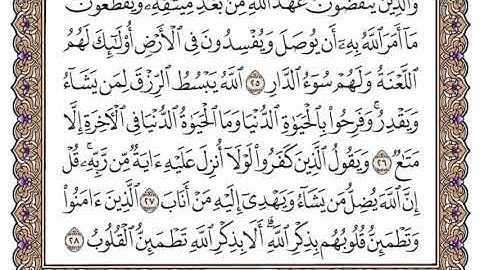 وَٱلَّذِينَ يَنقُضُونَ عَهْدَ ٱللَّهِ مِنۢ بَعْدِ مِيثَٰقِهِۦ وَيَقْطَعُونَ
مَآ أَمَرَ ٱللَّهُ بِهِۦٓ أَن يُوصَلَ وَيُفْسِدُونَ فِى ٱلْأَرْضِ أُو۟لَٰٓئِكَ لَهُمُ
ٱللَّعْنَةُ وَلَهُمْ سُوٓءُ ٱلدَّارِ ٢٥ ٱللَّهُ يَبْسُطُ ٱلرِّزْقَ لِمَن يَشَآءُ
وَيَقْدِرُ وَفَرِحُوا۟ بِٱلْحَيَوٰةِ ٱلدُّنْيَا وَمَا ٱلْحَيَوٰةُ ٱلدُّنْيَا فِى ٱلْءَاخِرَةِ إِلَّا
مَتَٰعٌ ٢٦ وَيَقُولُ ٱلَّذِينَ كَفَرُوا۟ لَوْلَآ أُنزِلَ عَلَيْهِ ءَايَةٌ مِّن رَّبِّهِۦ قُلْ
إِنَّ ٱللَّهَ يُضِلُّ مَن يَشَآءُ وَيَهْدِىٓ إِلَيْهِ مَنْ أَنَابَ ٢٧ ٱلَّذِينَ ءَامَنُوا۟
وَتَطْمَئِنُّ قُلُوبُهُم بِذِكْرِ ٱللَّهِ أَلَا بِذِكْرِ ٱللَّهِ تَطْمَئِنُّ ٱلْقُلُوبُ ٢٨